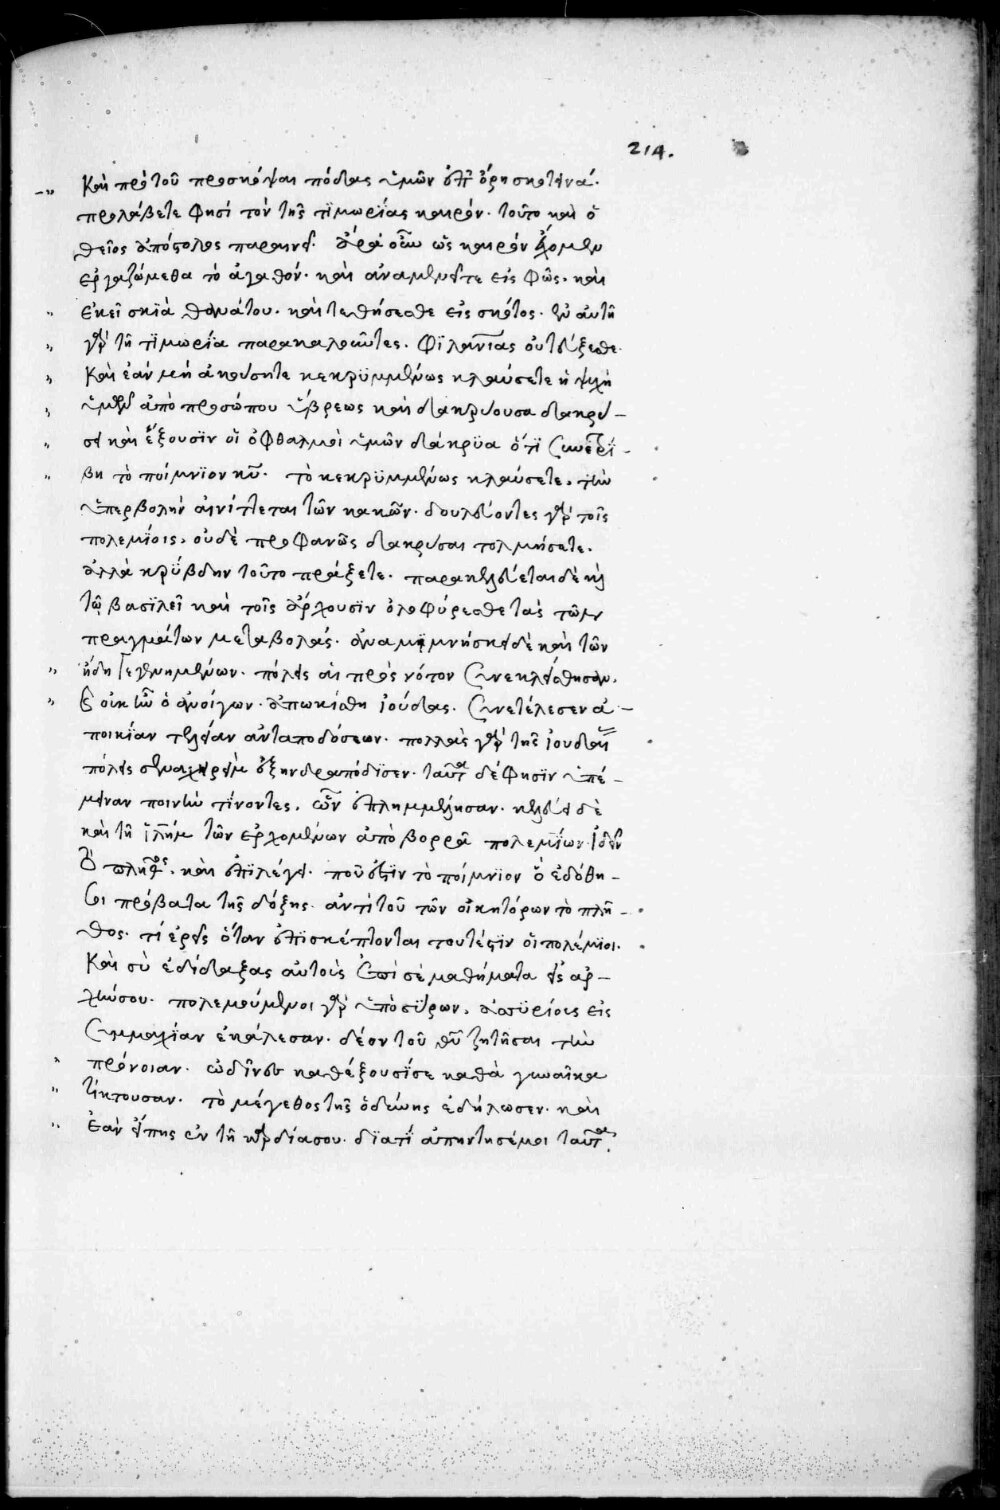 214.
Καὶ πρὸ τοῦ προσκόψαι πόδας ὑμῶν ἐπ' ὄρη σκοτεινά.
προλάβετε φησὶ τὸν τῆς τϊμωρίας καιρόν. τοῦτο καὶ ὁ
θεῖος ἀπόστολος παραινεῖ. ἄρα οὖν ὡς καιρὸν ἔχομεν
ἐργαζώμεθα τὸ ἀγαθόν. καὶ ἀναμενεῖτε εἰς φῶς. καὶ
ἐκεῖ σκιὰ θανάτου. καὶ τεθήσεσθε εἰς σκότος. ἐν αὐτῇ
γὰρ τῇ τϊμωρία παρακαλοῦντες. φϊλανίας οὐ τεύξεσθε.
Καὶ ἐὰν μὴ ἀκούσητε κεκρϋμμένως κλαύσετε ἡ ψυχὴ
ὑμῶν ἀπὸ προσώπου ὕβρεως καὶ δακρύουσα δακρύ-
σει καὶ ἕξουσϊν οἱ ὀφθαλμοὶ ὑμῶν δάκρϋα ὅτϊ συνετρί-
βη τὸ ποίμνϊον κυ. τὸ κεκρϋμμένως κλαύσετε. τὴν
ὑπερβολὴν αἰνίττεται τῶν κακῶν. δουλεύοντες γὰρ τοῖς
πολεμίοις. οὐδὲ προφανῶς δακρύσαι τολμήσετε.
ἀλλὰ κρύβδην τοῦτο πράξετε. παρακελεύεται δὲ κὶ
τῷ βασϊλεῖ καὶ τοῖς ἄρχουσϊν ὀλοφύρεσθε τὰς τῶν
πραγμάτων μεταβολάς. ἀναμϊμνήσκει δὲ καὶ τῶν
ἤδη γεγενημένων. πόλεις αἱ πρὸς νότον συνεκλείσθησαν.
καὶ οὐκ ἦν ὁ ἀνοίγων. ἀπωκίσθη ἰούδας. συνετέλεσεν ἀ-
ποικίαν τελείαν ἀνταποδόσεων. πολλὰς γὰρ τῆς ἰουδαί
πόλεις σεναχηρεὶμ ἐξηνδραπόδϊσεν. ταῦτα δέ φησϊν ὑπέ-
μειναν ποινὴν τίνοντες. ὧν ἐπλημμέλησαν. κελεύει δὲ
καὶ τῇ ἰλημ τῶν ἐρχομένων ἀπὸ βορρᾶ πολεμίων ἰδεῖν
τὸ πλῆθος. καὶ ἐπϊλέγει. ποῦ ἐστϊν τὸ ποίμνϊον ὃ ἐδόθη-
σοι πρόβατα τῆς δόξης. ἀντὶ τοῦ τῶν οἰκητόρων τὸ πλῆ-
θος. τί ἐρεῖς ὅταν ἐπϊσκέπτονται τουτέστϊν οἱ πολέμϊοι.
Καὶ σὺ ἐδίδαξας αὐτοὺς ἐπὶ σὲ μαθήματα εἰς ἀρ-
χήν σου. πολεμούμενοι γὰρ ὑπὸ σύρων. ἀσσϋρίους εἰς
συμμαχίαν ἐκάλεσαν. δέον τοῦ θυ ζητῆσαι τὴν
πρόνοιαν. ὠδῖνες καθέξουσί σε καθὰ γυναῖκα
τίκτουσαν. τὸ μέγεθος τῆς ὀδύνης ἐδήλωσεν. καὶ
ἐὰν εἴπης ἐν τῇ καρδία σου. δϊατί ἀπήντησέ μοι ταῦτα.